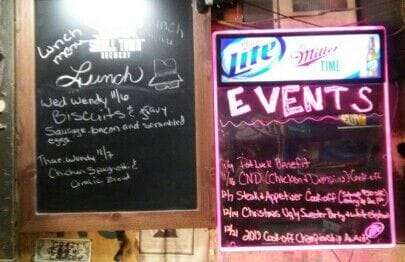 Lunch
menu
SMALL TOWN
BREWERY
Lunch
Wed Wendy 11/6
BISCUITS & gravy
Sausage, bacon and scrambled
eggs
Thur Wendy 11/7
Chicken Spaghetti &
Garlic Bread
Lite
Miller
TIME
EVENTS
Potluck Benefit
CND (Chicken & Dumpling) Cook-off
12/7 Steak & Appetizer Cook-off
12/14 Christmas Ugly Sweater Party & white elephant
12/21 2013 Cook-off Championship Awards